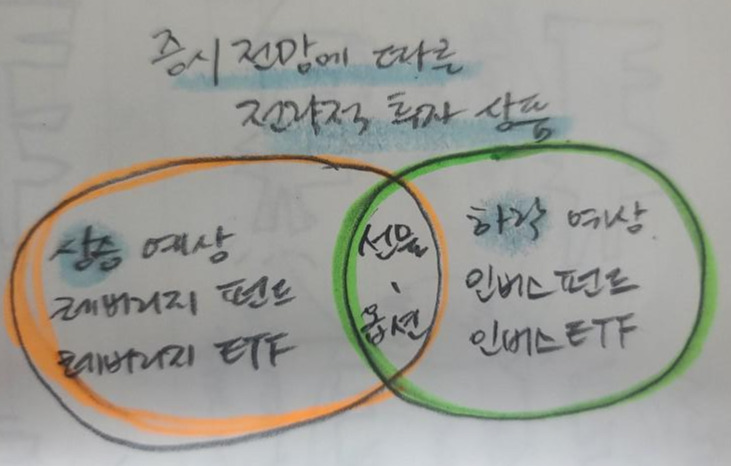 증시 전망에 따른
전략적 투자 상품
상승 예상
레버리지 펀드
레버리지 ETF
선물
、
옵션
하락 예상
인버스펀드
인버스ETF